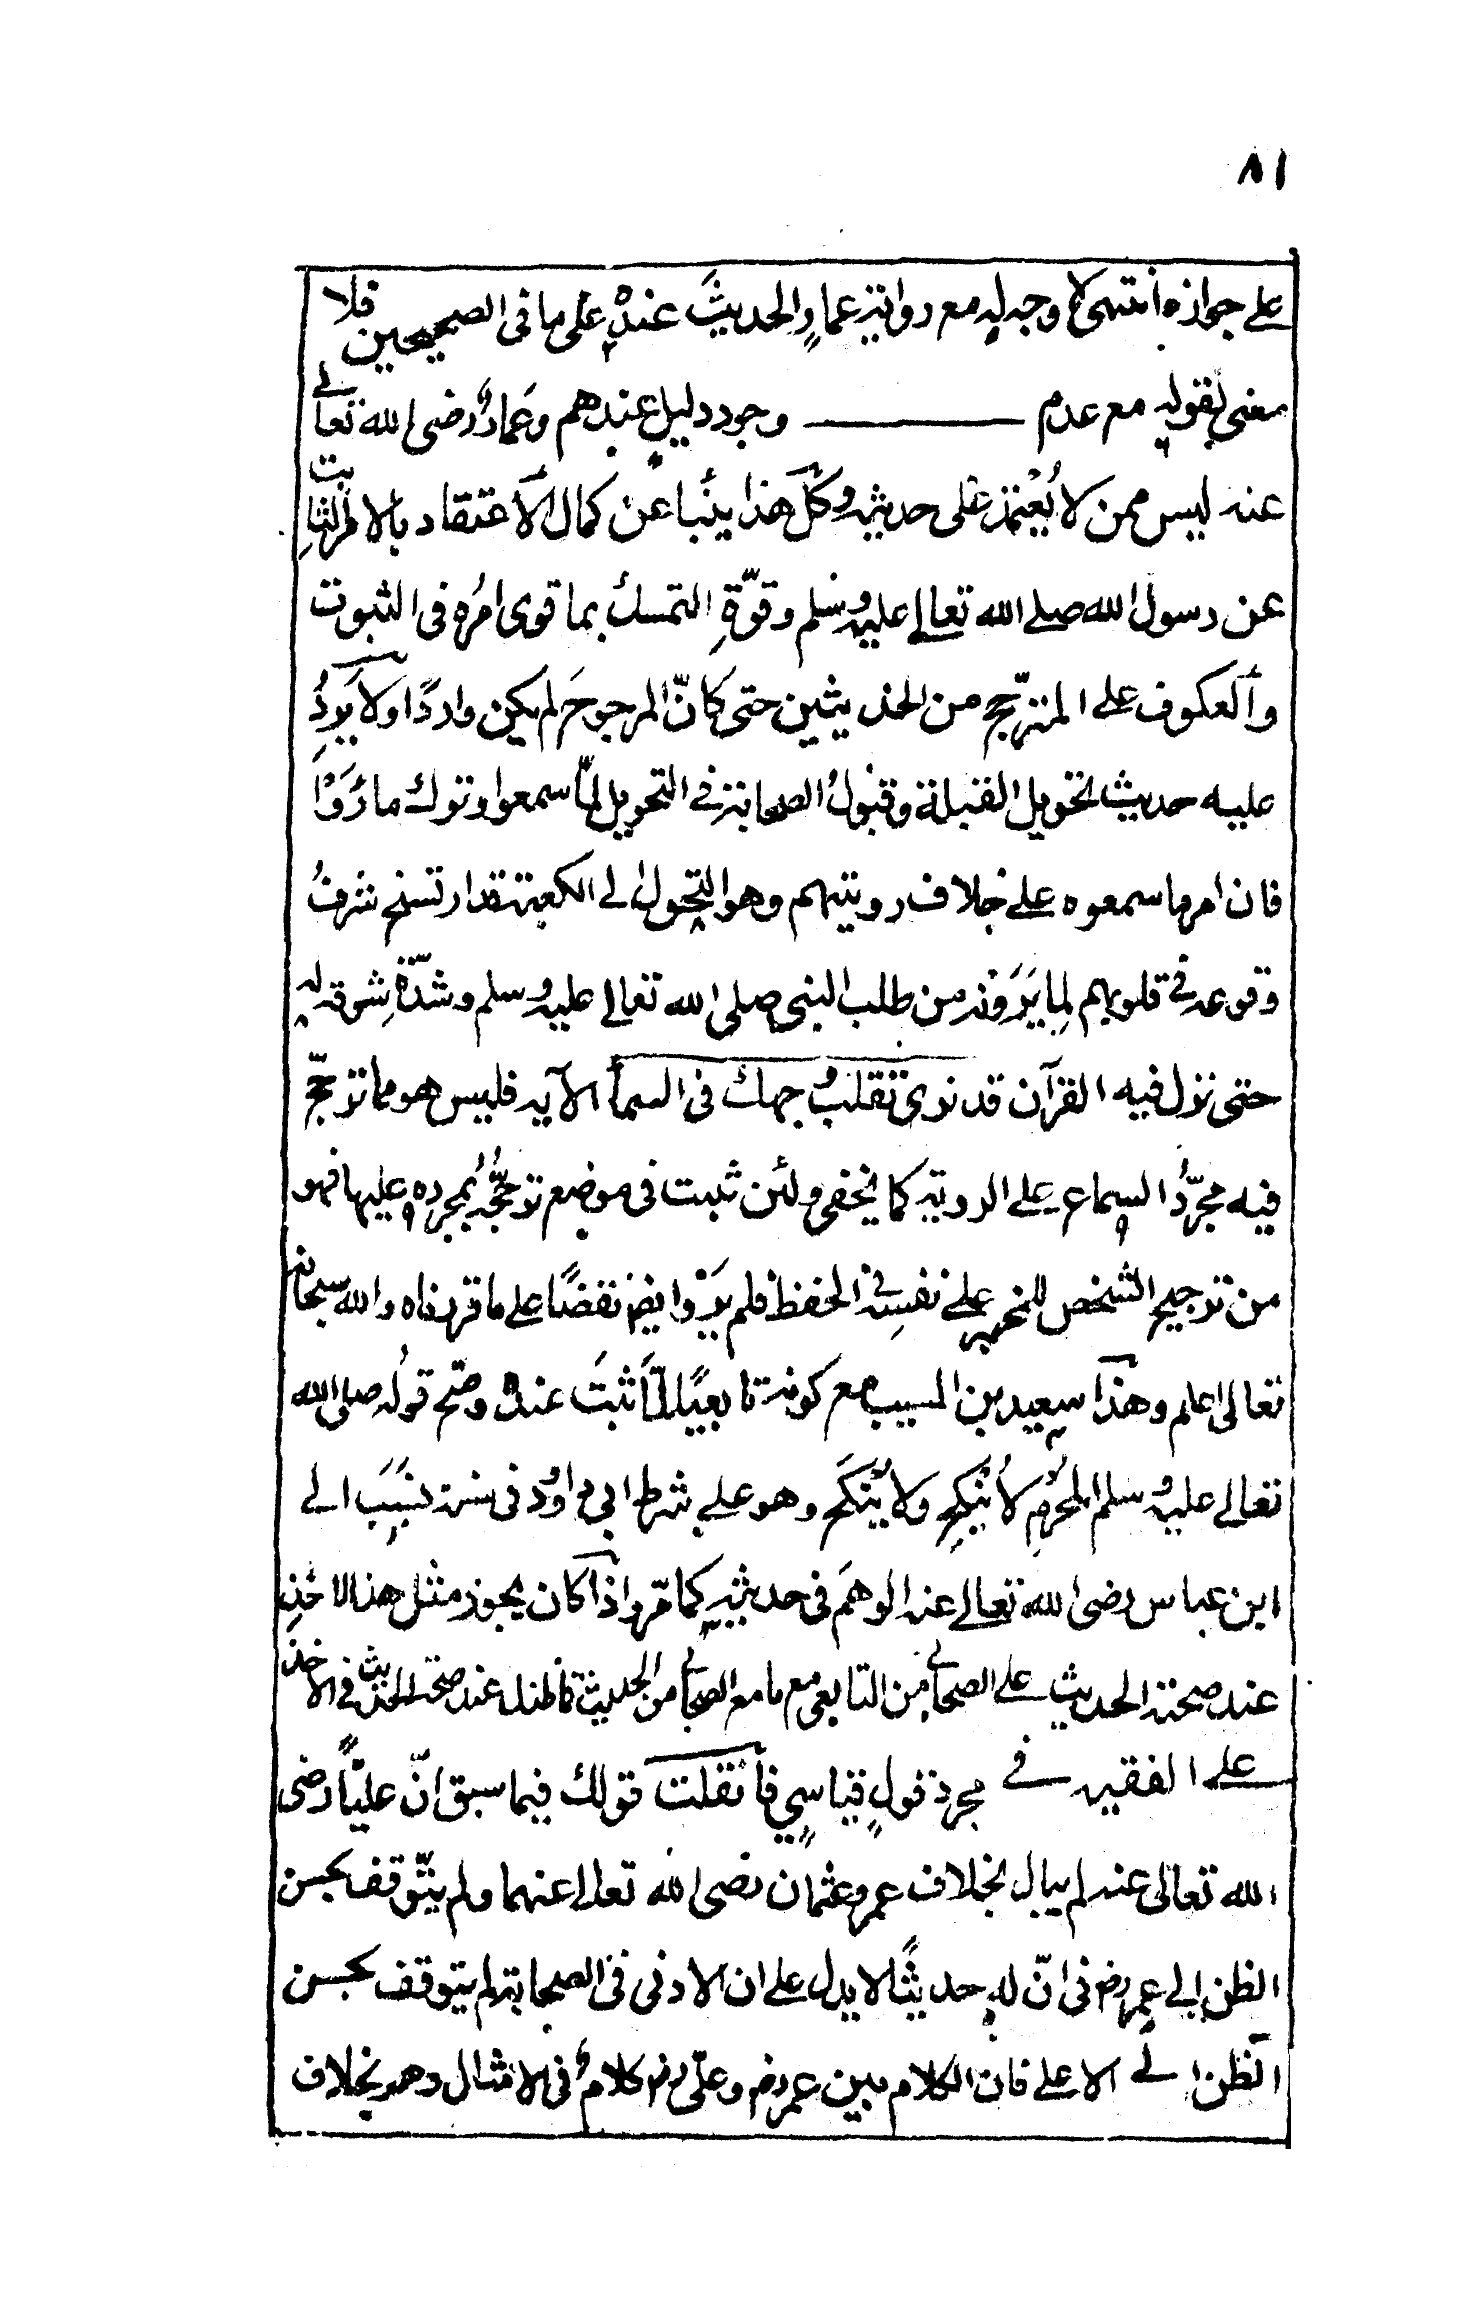 ٨١
على جوازه انتهى لا وجه له مع رواية عمارٍ الحديثَ عندهٗ على ما فى الصحيحين فلا
معنى لقوله مع عدم ــــــ وجود دليل عندهم وعمارٌ رضى الله تعالى
عنه ليس ممن لا يُعْتمد على حديثه وكلّ هذا ينبأ عن كمال الاعتقاد بالامر الثابت
عن رسول الله صلے الله تعالى عليه وسلم وقوّةِ التمسك بما قوى امرُه فى الثبوت
والعكوف على المترجّح من الحديثين حتى كانّ المرجوحَ لم يكن واردًا ولا يَرِدُ
عليه حديث تحويل القبلة وقبولُ الصحابة فى التحويل لمّا سمعوا وترك ما رَوَوْا
فان امر ما سمعوه على خلاف رويتهم وهو التحول الى الكعبة قد ارتسخ شرفُ
وقوعه فى قلوبهم لِما يَرَوْنه من طلب النبى صلى الله تعالى عليه وسلم وشدّةِ شوقه له
حتى نزل فيه القرآن قد نرى تقلب وجهك فى السماء الآية فليس هو مما ترجّح
فيه مجرّدُ السماع على الروية كما يخفى ولئن ثبت فى موضع ترجّحُه بمجرده عليها فهو
من ترجيح الشخص للمخبر على نفسِه فى الحفظ فلم يَرَوْا نقضًا على ما قررناه والله سبحانه
تعالى اعلم وهذا سعيد بن المسيب مع كونه تابعيًا لمّا ثبتَ عندهٗ وصح قولُه صلى الله
تعالى عليه وسلم المُحْرِم لا يَنْكِح ولا يُنْكَح وهو على شرط ابى داود فى سننه نسَبَ الى
ابن عباس رضى الله تعالى عنه الوهمَ فى حديثه كما مرّ واذا كان يجوز مثل هذا الاخذِ
عند صحة الحديث على الصحابى من التابعى مع ما مع الصحابى من الحديث فما ظنك عند صحة الحديث فى الاخذ
على الفقيه فى مجرد قولٍ قياسيٍ فأن قلت قولك فيما سبق انّ عليًّا رضى
الله تعالى عنه لم يبال بخلاف عمر وعثمان رضى الله تعالى عنهما ولم يتوقف بحسن
الظن الى عمر رض فى انّ له حديثًا لا يدل على ان الادنى فى الصحابة لم يتوقف بحسن
الظن الى الاعلى فان الكلام بين عمر رض وعلى رض كلامٌ فى الامثال وهو بخلاف